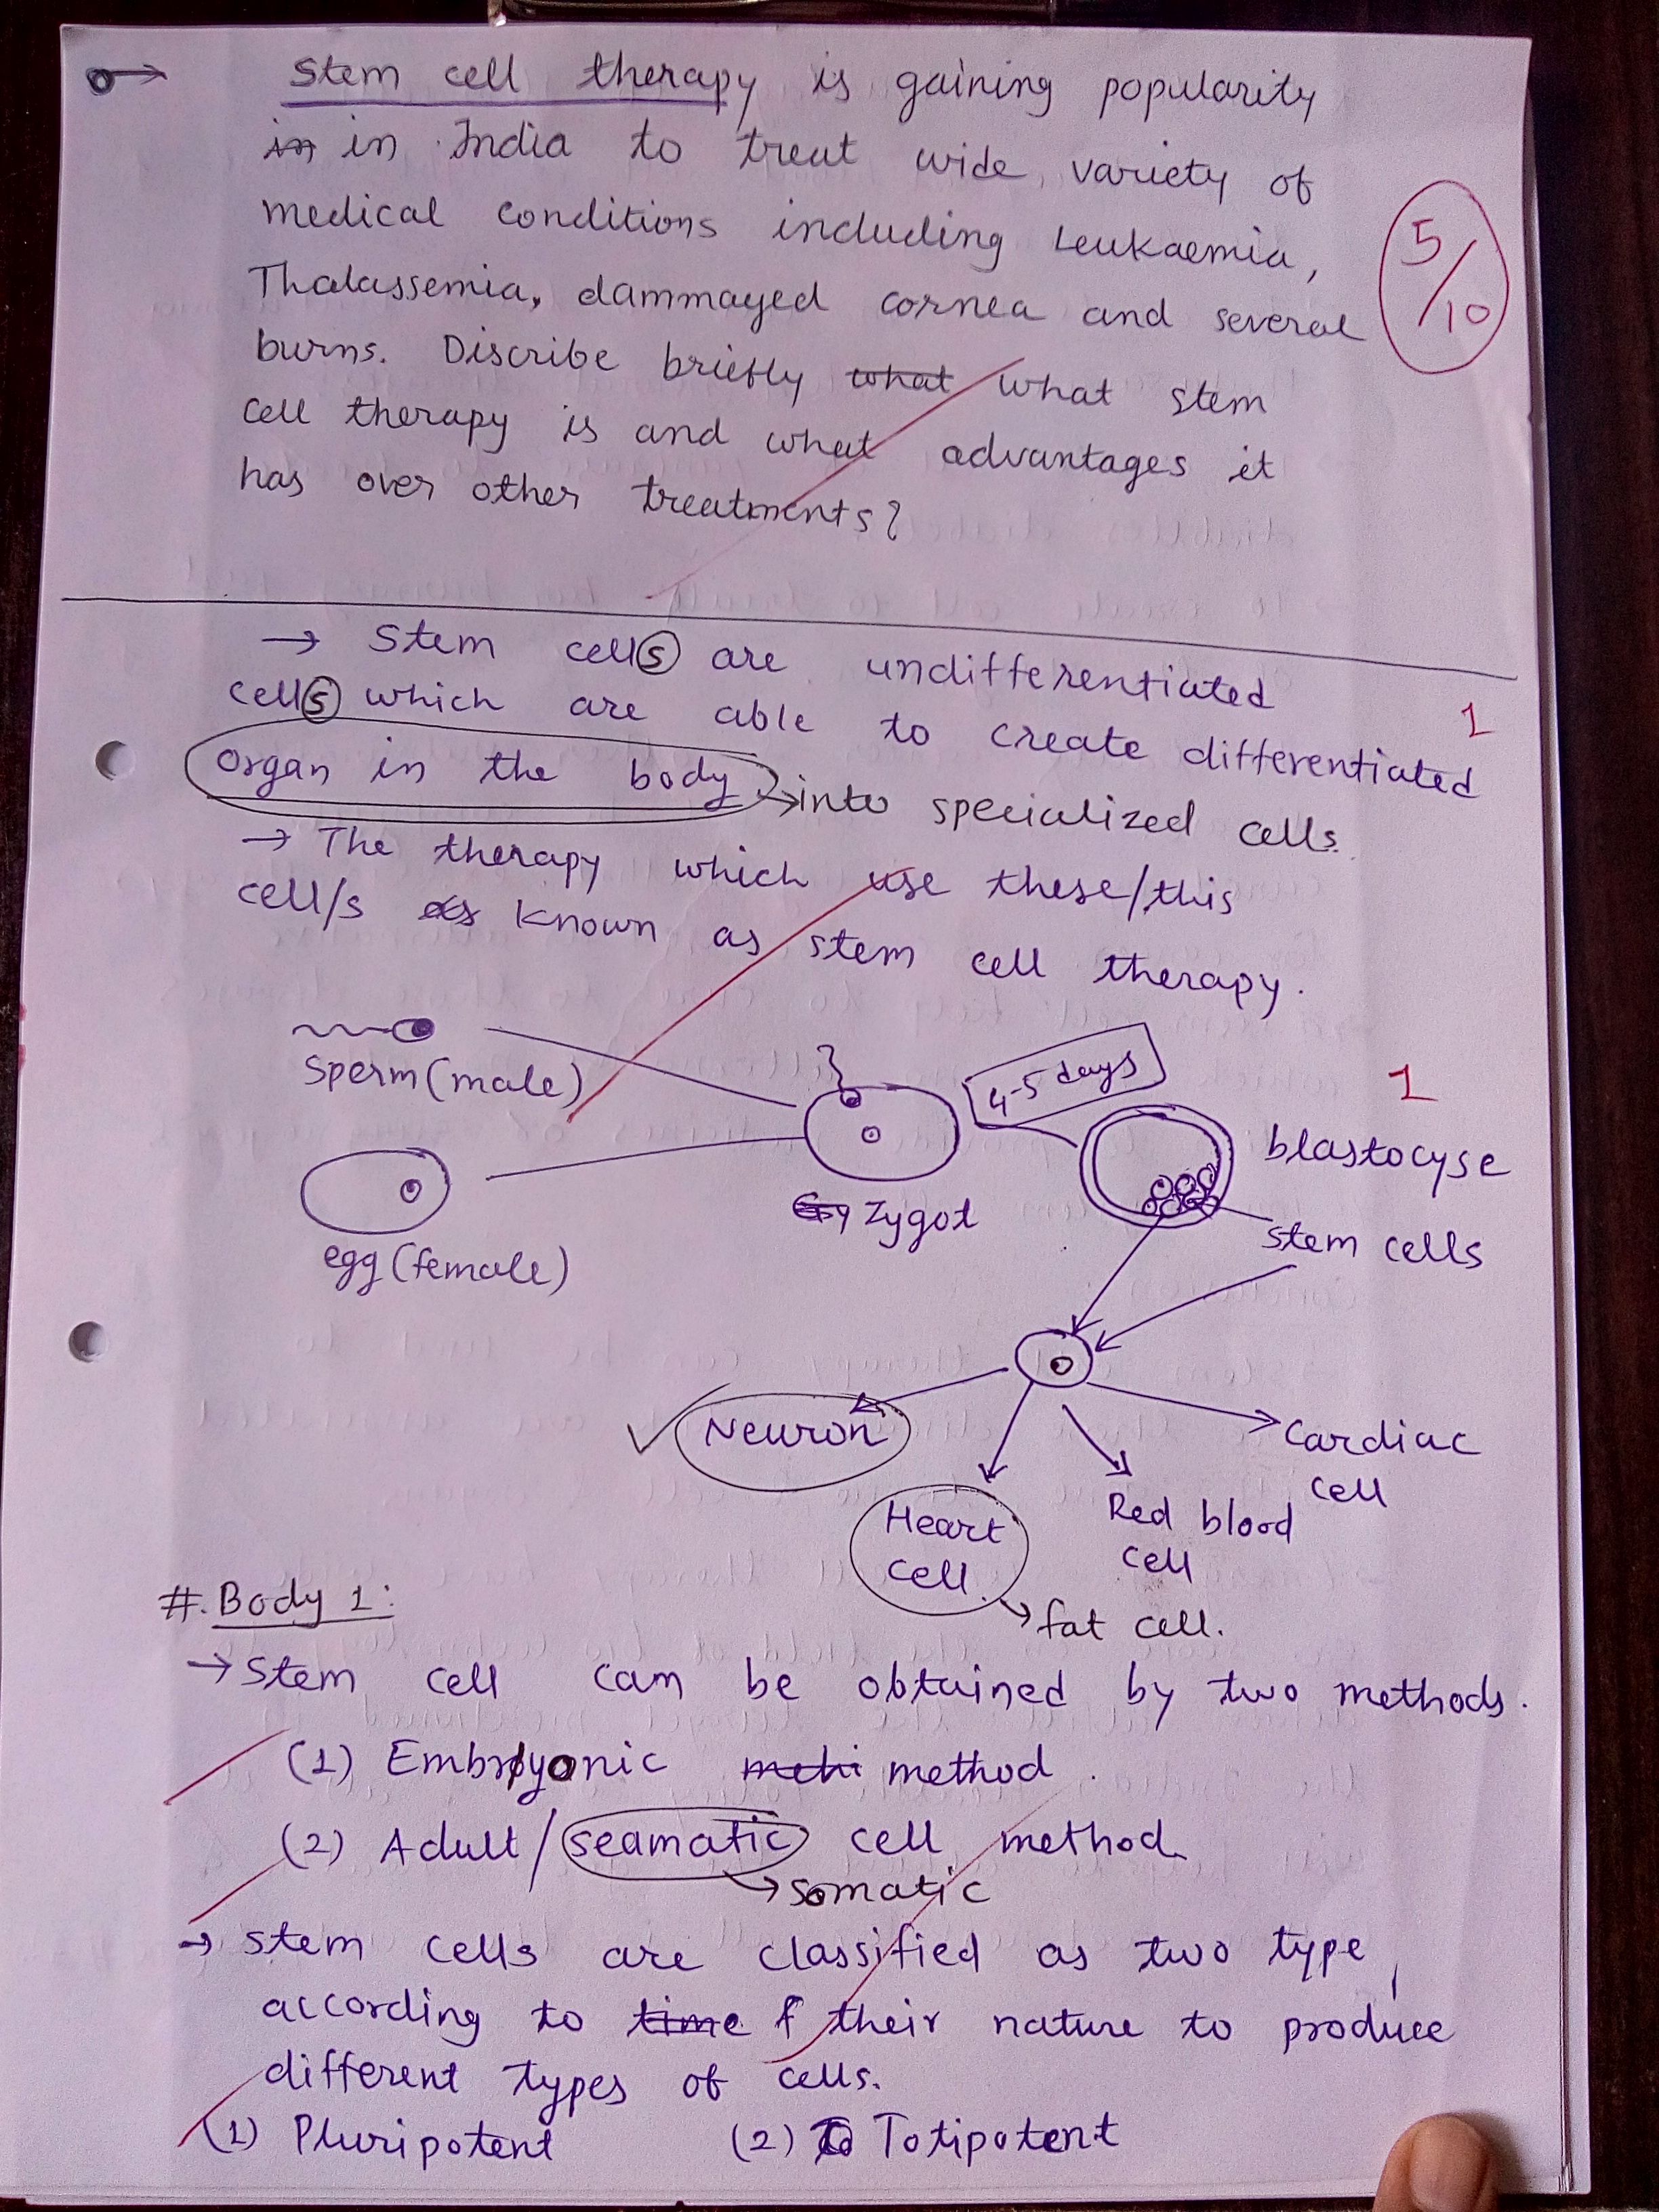 Stem cell therapy is gaining popularity
in in India to treat wide variety of
medical conditions including Leukaemia,
Thalassemia, dammayed cornea and several
burns. Discribe briefly what what stem
cell therapy is and what advantages it
has over other treatments?
5/10
→ Stem cells are undifferentiated
cells which are able to create differentiated
1
organ in the body → into specialized cells.
→ The therapy which use these/this
cell/s is known as stem cell therapy.
sperm (male)
4-5 days
1
blastocyse
Zygot
egg (female)
stem cells
Neuron
Cardiac
cell
Heart
cell
Red blood
cell
→ fat cell.
#. Body 1:
→ Stem cell can be obtained by two methods.
(1) Embryonic method.
(2) Adult/seamatic cell method.
→ somatic
→ stem cells are classified as two type,
according to time f their nature to produce
different types of cells.
(1) Pluripotent (2) Totipotent